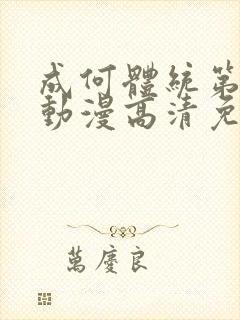 成何體統第
動漫高清免
萬慶良